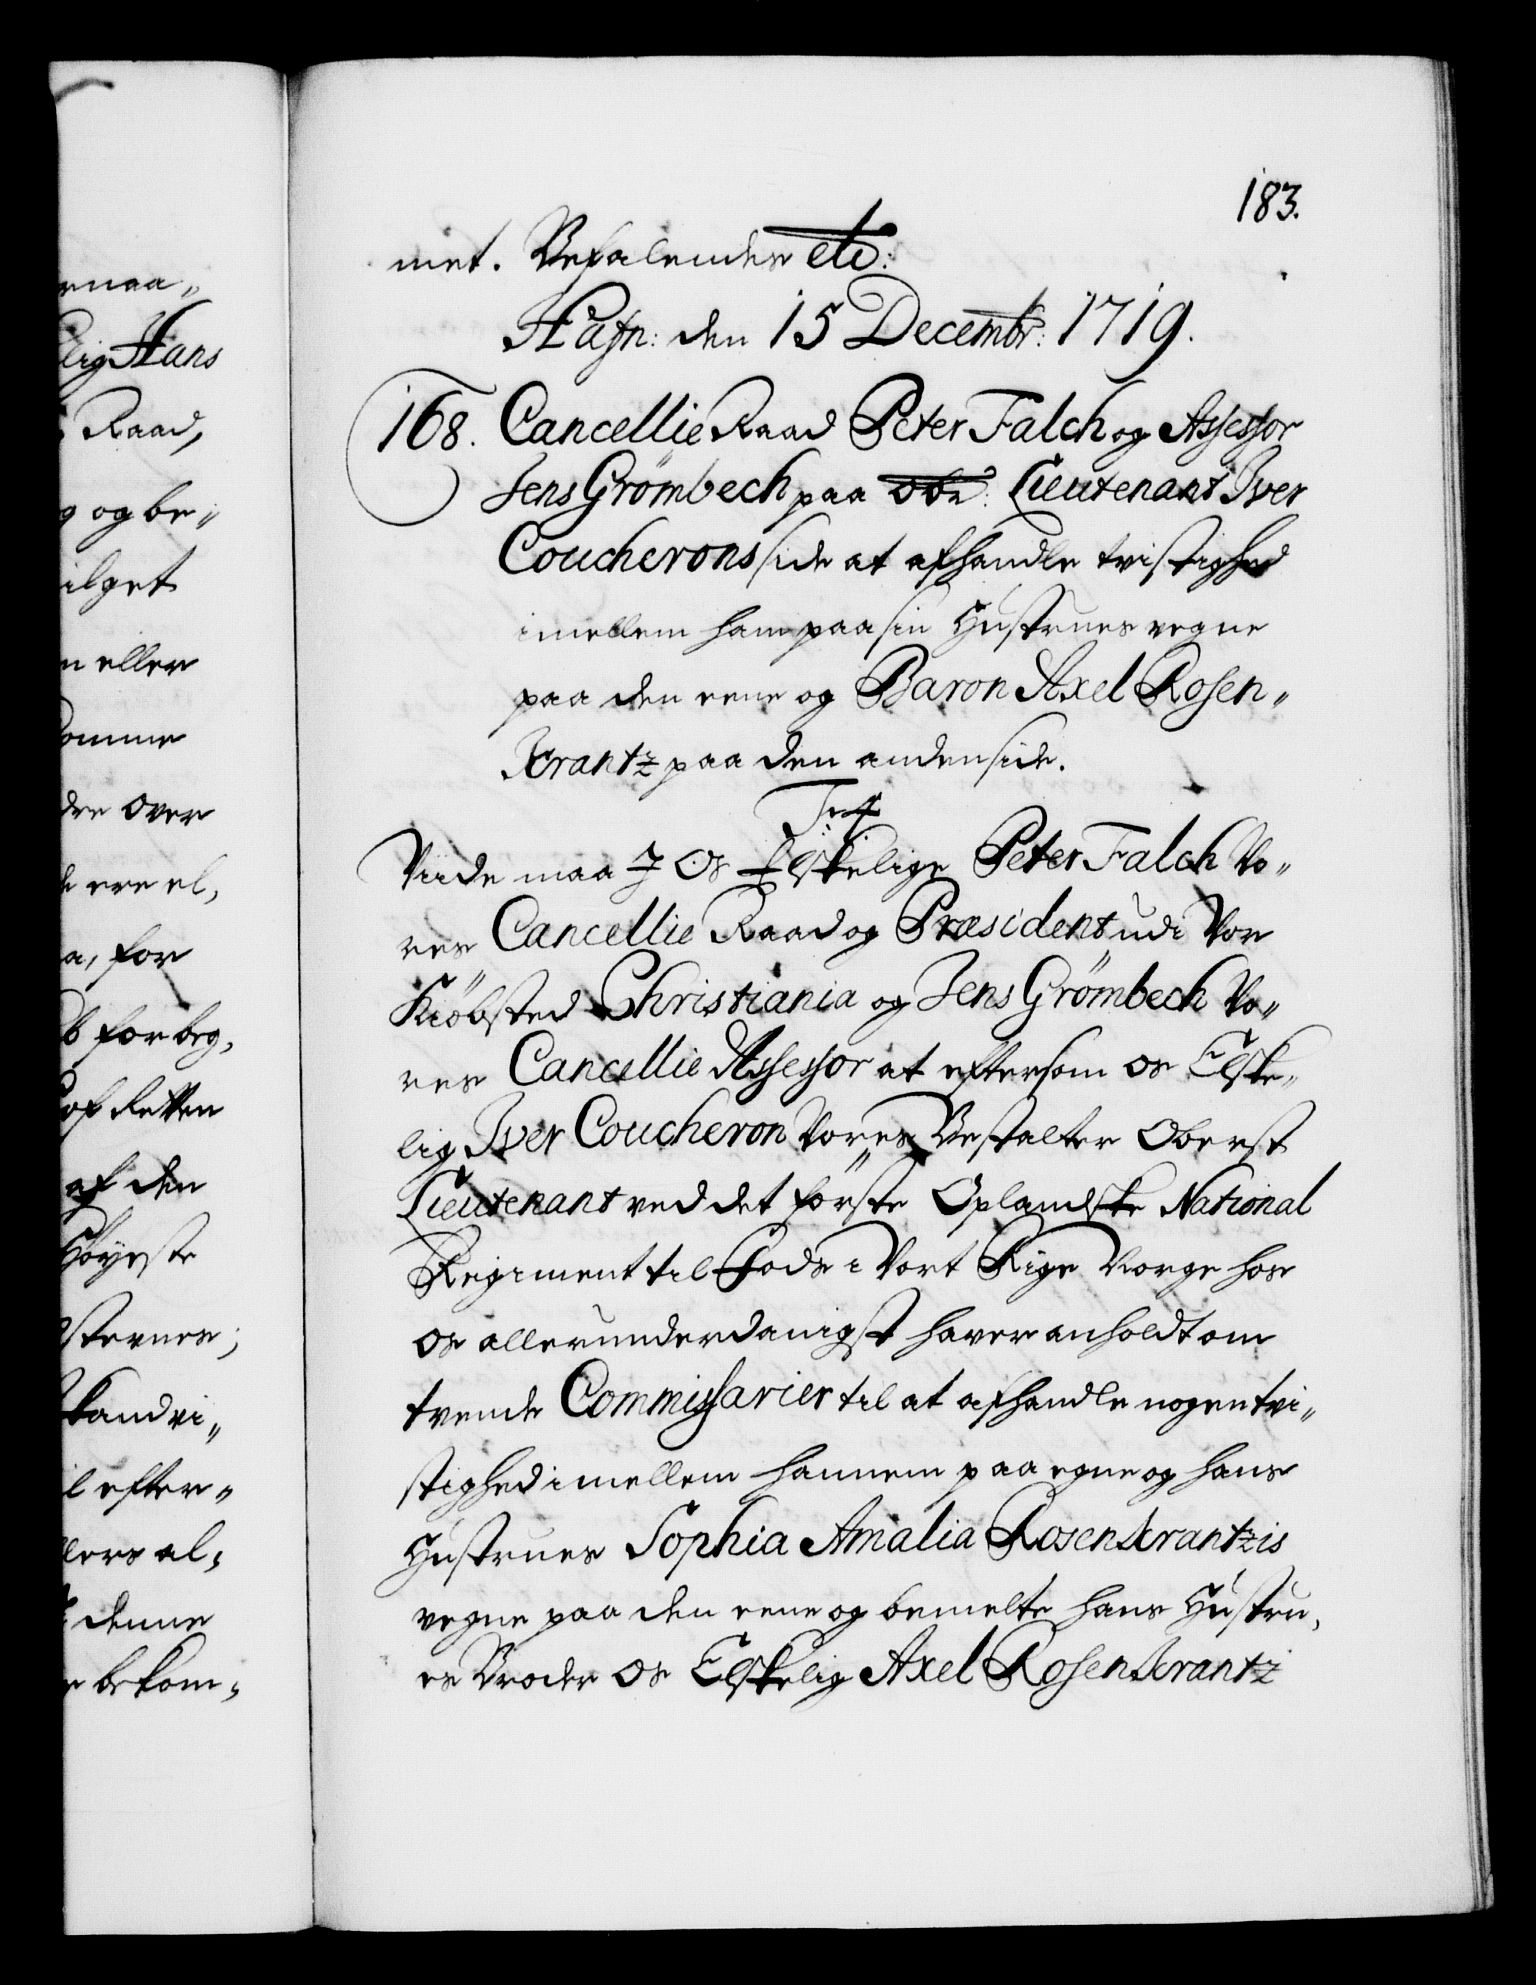 183.
met. Befalendes etc:
Hafn: den 15 Decembr: 1719.
168. Cancellie Raad Peter Falch og Assessor
Jens Grömbech paa Obr: Lieutenant Iver
Coucherons side at afhandle tvistighed
imellem ham paa sin Hustrues vegne
paa den eene og Baron Axel Rosen„
Krantz paa den anden side.
F: 4
Viide maa I Os Elskelige Peter Falch Vo„
res Cancellie Raad og Præsident udi Vor
Kiöbsted Christiania og Jens Grömbech Vo„
res Cancellie Assessor at eftersom os Elske„
lig Iver Coucheron Vores Bestalter Oberst
Lieutenant ved det förste Oplandske National
Regiment til Fods i Vort Rige Norge hos
os allerunderdanigst haver anholdt om
tvende Commissarier til at afhandle nogen tvi„
stighed imellem hannem paa egne og hans
Hustrues Sophia Amalia Rosenkrantzis
vegne paa den eene og bemelte hans Hustru„
es Broder os Elskelig Axel Rosenkrantz
ernaa„
lig Hans
Raad,
g og be„
ilget
n eller
omme
dre over
ere el„
a, for
for beg„
of Retten
af den
Höyeste
sternes;
kand vi„
l efter„
lers al„
denne
bekom„